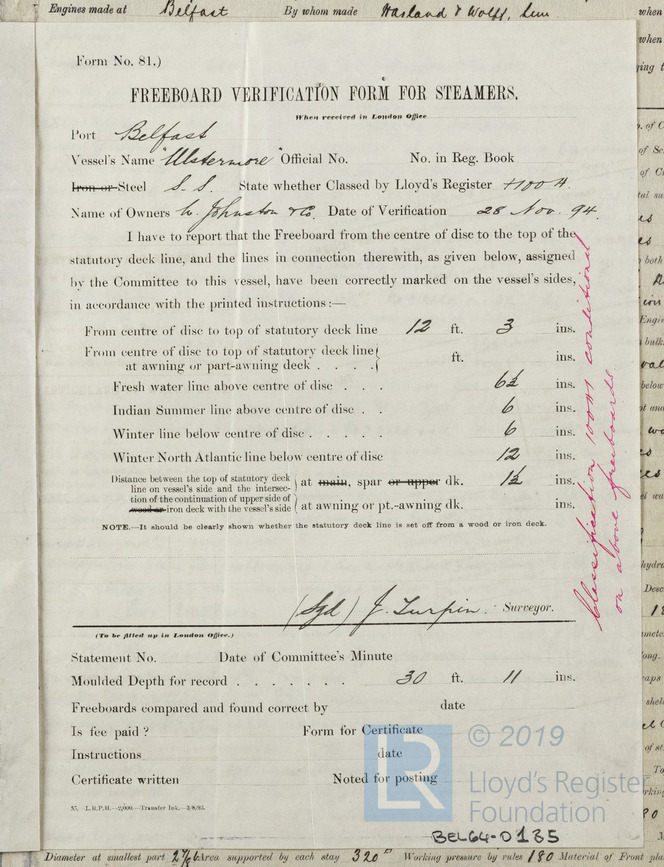 Engines made at Belfast By whom made Harland & Wolff, Lim
Form No. 81.)
FREEBOARD VERIFICATION FORM FOR STEAMERS.
When received in London Office
Port Belfast
Vessel's Name "Ulstermore" Official No. No. in Reg. Book
Iron or Steel S.S. State whether Classed by Lloyd's Register +100 A.
Name of Owners W. Johnston & Co. Date of Verification 28 Nov. 94.
I have to report that the Freeboard from the centre of disc to the top of the
statutory deck line, and the lines in connection therewith, as given below, assigned
by the Committee to this vessel, have been correctly marked on the vessel's sides,
in accordance with the printed instructions:—
From centre of disc to top of statutory deck line 12 ft. 3 ins.
From centre of disc to top of statutory deck line
at awning or part-awning deck . . . . ft. ins.
Fresh water line above centre of disc . . 6½ ins.
Indian Summer line above centre of disc . . 6 ins.
Winter line below centre of disc . . . . . 6 ins.
Winter North Atlantic line below centre of disc 12 ins.
Distance between the top of statutory deck
line on vessel's side and the intersec-
tion of the continuation of upper side of
wood or iron deck with the vessel's side
at main, spar or upper dk. 1½ ins.
at awning or pt.-awning dk. ins.
NOTE.—It should be clearly shown whether the statutory deck line is set off from a wood or iron deck.
Classification 100A1 conditional
on above freeboards
(Sgd) J. Turpin. Surveyor.
(To be filled up in London Office.)
Statement No. Date of Committee's Minute
Moulded Depth for record . . . . . . . 30 ft. 11 ins.
Freeboards compared and found correct by date
Is fee paid? Form for Certificate
Instructions date
Certificate written Noted for posting
57.—L.R.P.H.—2,000.—Transfer Ink.—3/8/93.
LR
© 2019
Lloyd's Register
Foundation
BEL64-0185
Diameter at smallest part 2 7/16 Area supported by each stay 320 Working pressure by rules 190 Material of Front